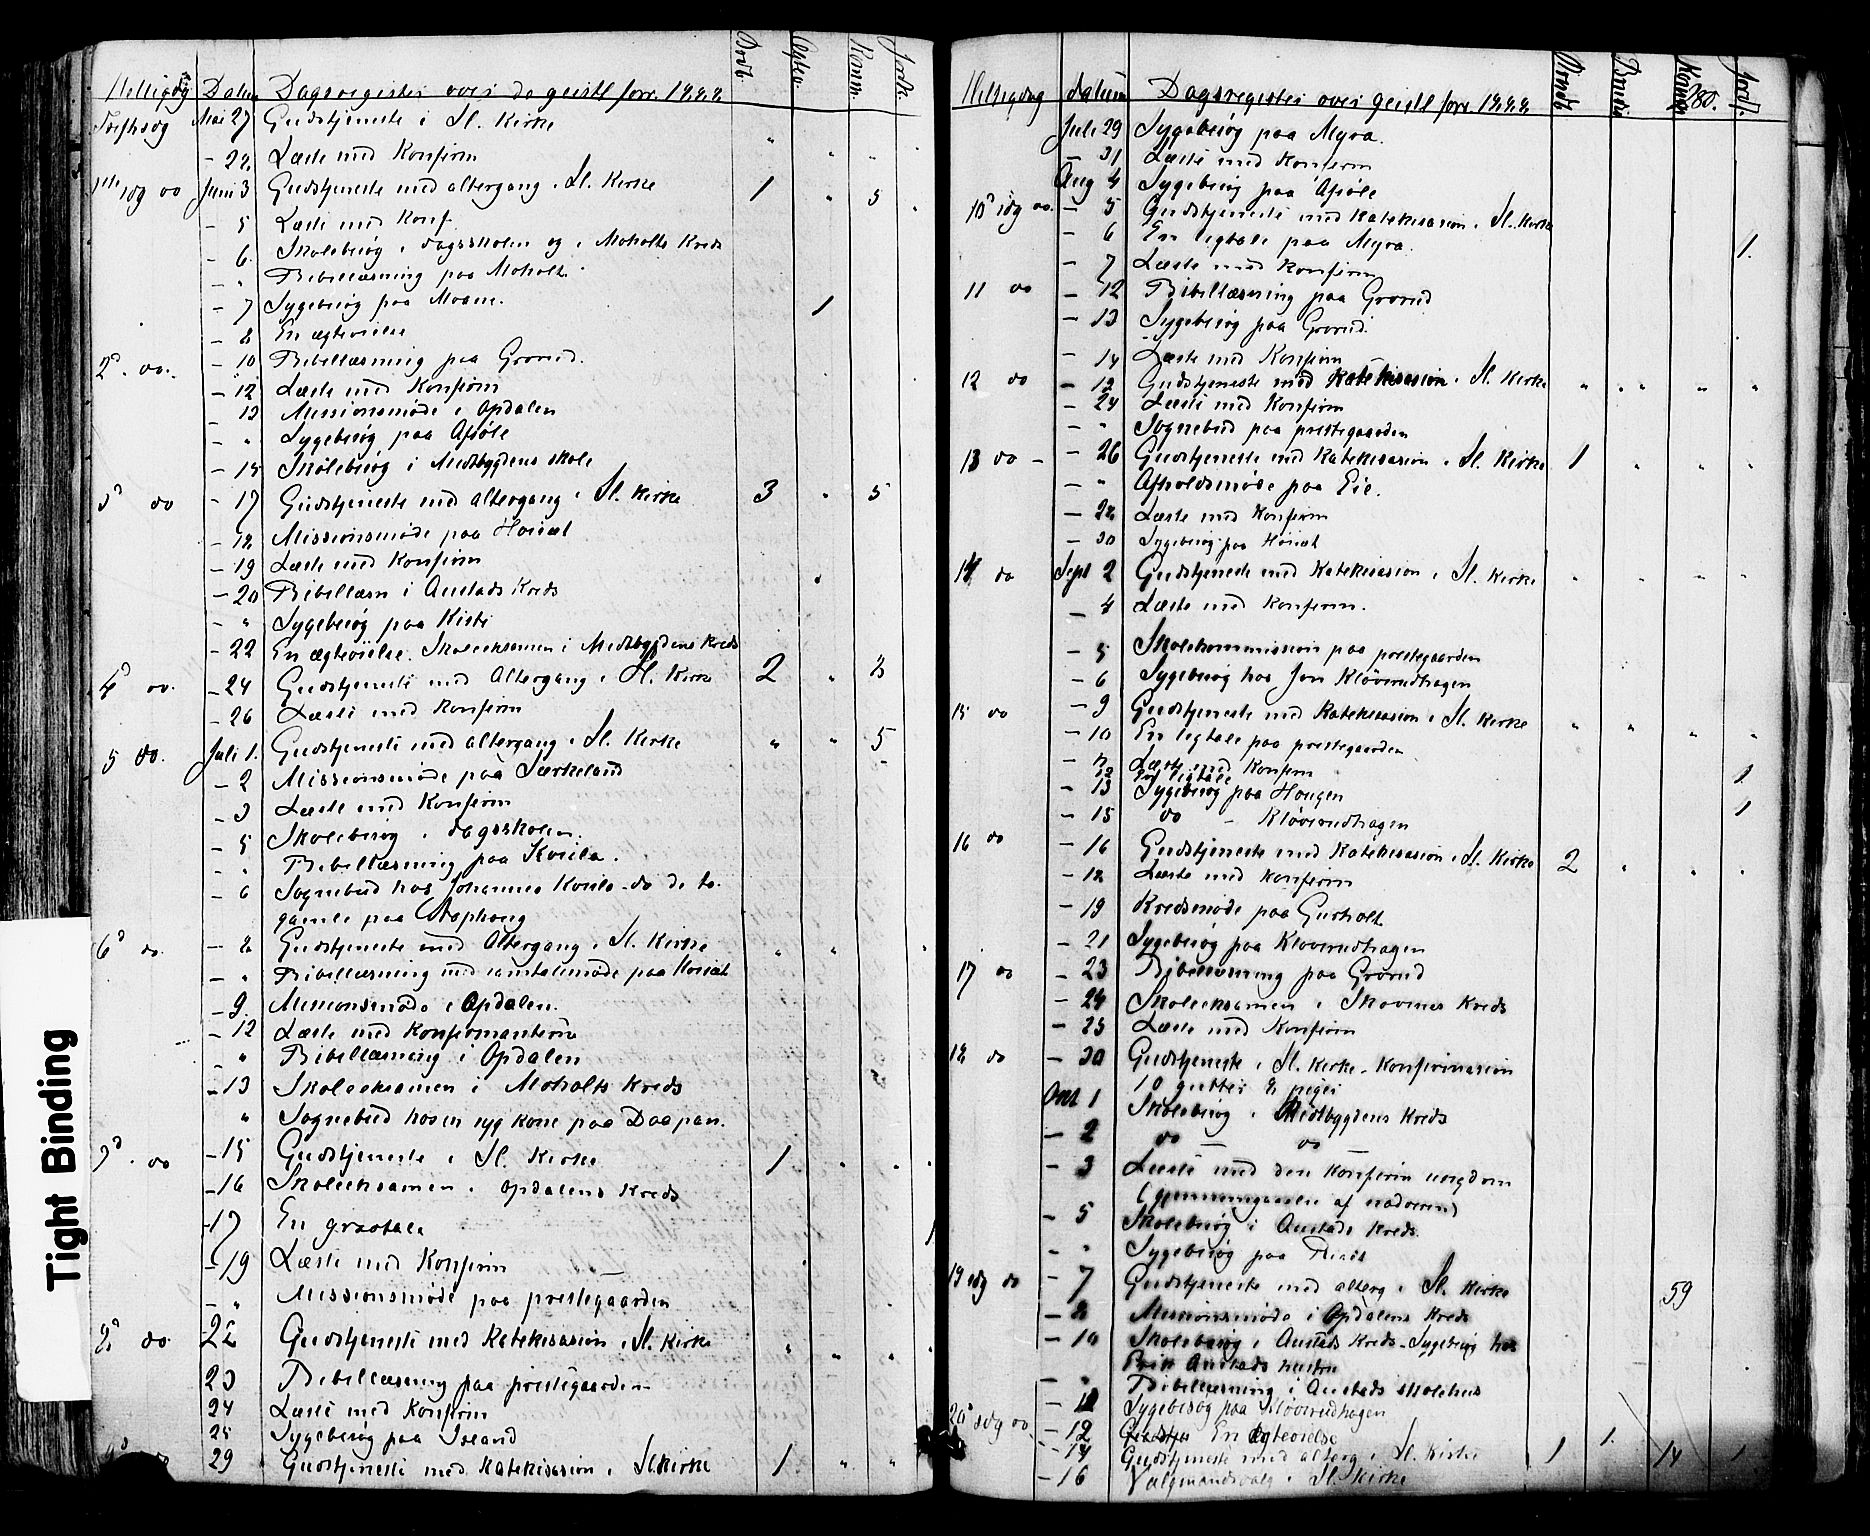 Helligdg Datum Dagsregister over de geistl forr. 1888 Døbt. Ægtev. Komm. Jordk.
Mai 27 Gudstjeneste i Sl. Kirke
- 28. Læste med Konfirm
1ste sdg do Juni 3 Gudstjeneste med altergang i Sl. Kirke 1 " 5
- 5 Læste med Konf.
- 6 Skolebesøg i dagsskolen og i Moholts Kreds
- " Bibellæsning paa Moholt.
- 7 Sygebesøg paa Moane. 1
- 8 En ægtevielse
2d do. - 10 Bibellæsning paa Grorud.
- 12 Læste med Konfirm
- 13 Missionsmøde i Opdalen
- " Sygebesøg paa
- 15 Skolebesøg i Medbygdens skole
3d do - 17 Gudstjeneste med altergang i Sl. Kirke 3 " 5
- 18 Missionsmøde paa
- 19 Læste med Konfirm
- 20 Bibellæsn i Austads Kreds
- " Sygebesøg paa Kiste
- 22 En ægtevielse. Skoleeksamen i Medbygdens Kreds
4d do. - 24 Gudstjeneste med Altergang i Sl. Kirke 2 " 3
- 26 Læste med Konfirm
5 do. Juli 1. Gudstjeneste med altergang i Sl. Kirke " " 5
- 2 Missionsmøde paa Særkeland
- 3 Læste med Konfirm
- 5 Skolebesøg i dagsskolen.
- " Bibellæsning paa
- 6 Sognebud hos Johannes do de to
gamle paa
6d do. - 8 Gudstjeneste med Altergang i Sl. Kirke " "
- " Bibellæsning med samtalemøde paa
- 9. Missionsmøde i Opdalen.
- 12 Læste med Konfirmanterne
- " Bibellæsning i Opdalen
- 13 Skoleeksamen i Moholts Kreds
" Sognebud hos en syg kone paa
7d. do - 15 Gudstjeneste i Sl. Kirke 1
- 16 Skoleeksamen i Opdalens Kreds
- 17 En gravtale 1
- 19 Læste med Konfirm
- " Missionsmøde paa prestegaarden
8d do 22 Gudstjeneste med Katekisasion i Sl. Kirke " " "
23 Bibellæsning paa prestegaarden
24 Læste med Konfirm
25 Sygebesøg paa
29 Gudstjeneste med Katekisasion i Sl. Kirke 1 " "
Helligdag datum Dagsregister over geistl forr 1888 Komm 280. Jordf.
Juli 29 Sygebesøg paa Myra.
- 31 Læste med Konfirm
Aug 4 Sygebesøg paa
10d sdg do. - 5 Gudstjeneste med Katekisasion i Sl. Kirke
- 6 En ligtale paa Myra. 1.
- 7 Læste med Konfirm
11 do - 12 Bibellæsning paa Grorud
- 13 Sygebesøg paa Grorud.
- 14 Læste med Konfirm
12 do Gudstjeneste med Katekisasion i Sl. Kirke " " " "
- 24 Læste med Konfirm
- " Sognebud paa prestegaarden
13 do - - 26 Gudstjeneste med Katekisasion i Sl. Kirke 1 " " "
- " Afholdsmøde paa Eie.
- 28 Læste med Konfirm
- 30 Sygebesøg paa
14 do Sept 2 Gudstjeneste med Katekisasion i Sl. Kirke " " "
- 4 Læste med Konfirm.
- 5 Skolekommission paa prestegaarden
- 6 Sygebesøg hos Jon Kløverudhagen
15 do - 9 Gudstjeneste med Katekisasion i Sl. Kirke " " " "
- 10 En ligtale paa prestegaarden
Læste med Konfirm
12 En ligtale 1
- 13 Sygebesøg paa Hougen
- 15 do - Kløverudhagen 1
16 do - 16 Gudstjeneste med Katekisasion i Sl. Kirke 2 " " "
- 18 Læste med Konfirm
- 19 Kredsmøde paa Gusholt
- 21 Sygebesøg paa Kløverudhagen
17 do - 23 Bibellæsning paa Grorud
- 24 Skoleeksamen i Skovenes Kreds
- 25 Læste med Konfirm
18 do - 30 Gudstjeneste i Sl. Kirke. Konfirmasion
10 gutter 8 piger
Okt 1 Skolebesøg i Medbygdens Kreds
- 2 do - do
- 3 Læste med den Konfirm ungdom
(gjennemgaaelse af nadveren)
- 5 Skolebesøg i Austads Kreds.
- " Sygebesøg paa
19 sdg do - 7 Gudstjeneste med alterg i Sl. Kirke 59
- 8 Missionsmøde i Opdalens Kreds
- 10 Skolebesøg i Austads Kreds - Sygebesøg hos
Austads hustru
- " Bibellæsning i Austads skolehus
- Sygebesøg paa Kløverudhagen
20d sdg do. - 12 En Ægtevielse 1.
- 14 Gudstjeneste med alterg i Sl. Kirke 1 14 1
- 16 Valgmandsvalg i Sl. Kirke
Tight Binding